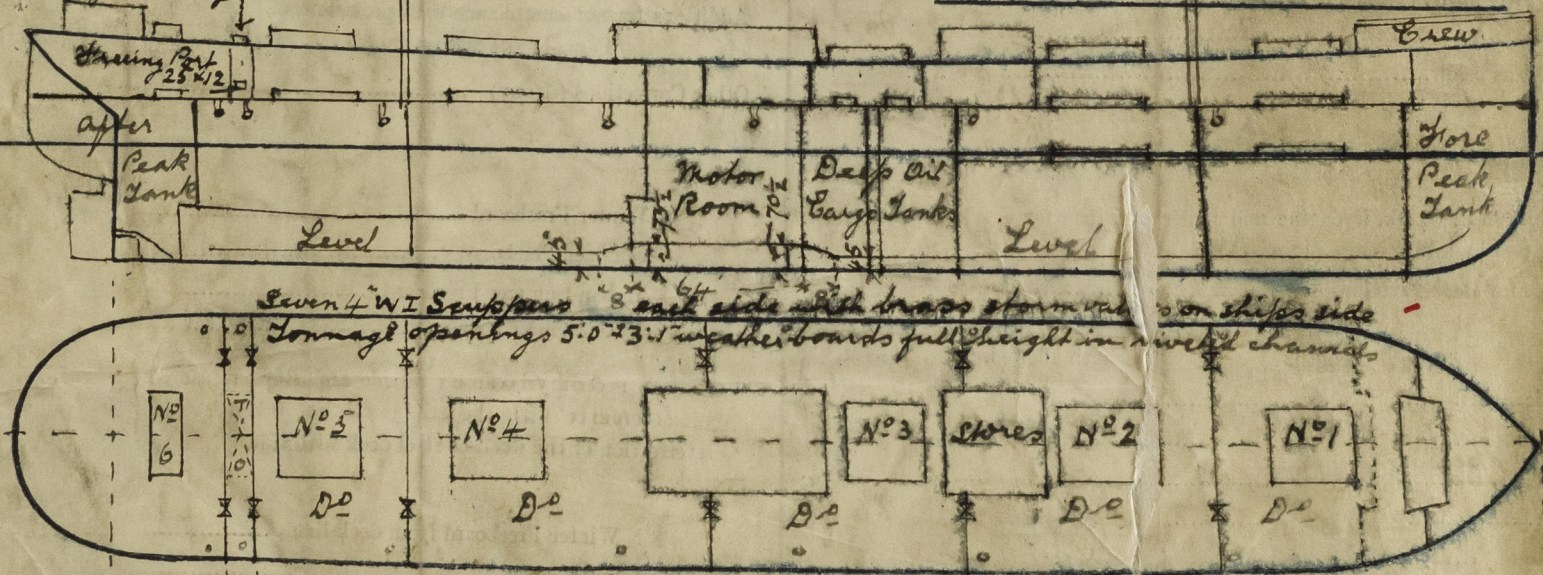 Crew
Freeing Port
25 x 12
After
Peak
Tank
Motor
Room
73½
70½
Deep Oil
Cargo Tanks
Fore
Peak
Tank
Level
Level
45
64
45
Seven 4" W I Scuppers 8 each side with brass storm valves on ships side
Tonnage openings 5'.0" x 3'.1" weather boards full height in riveted channels
No 6
No 5
No 4
No 3
Stores
No 2
No 1
Do
Do
Do
Do
Do